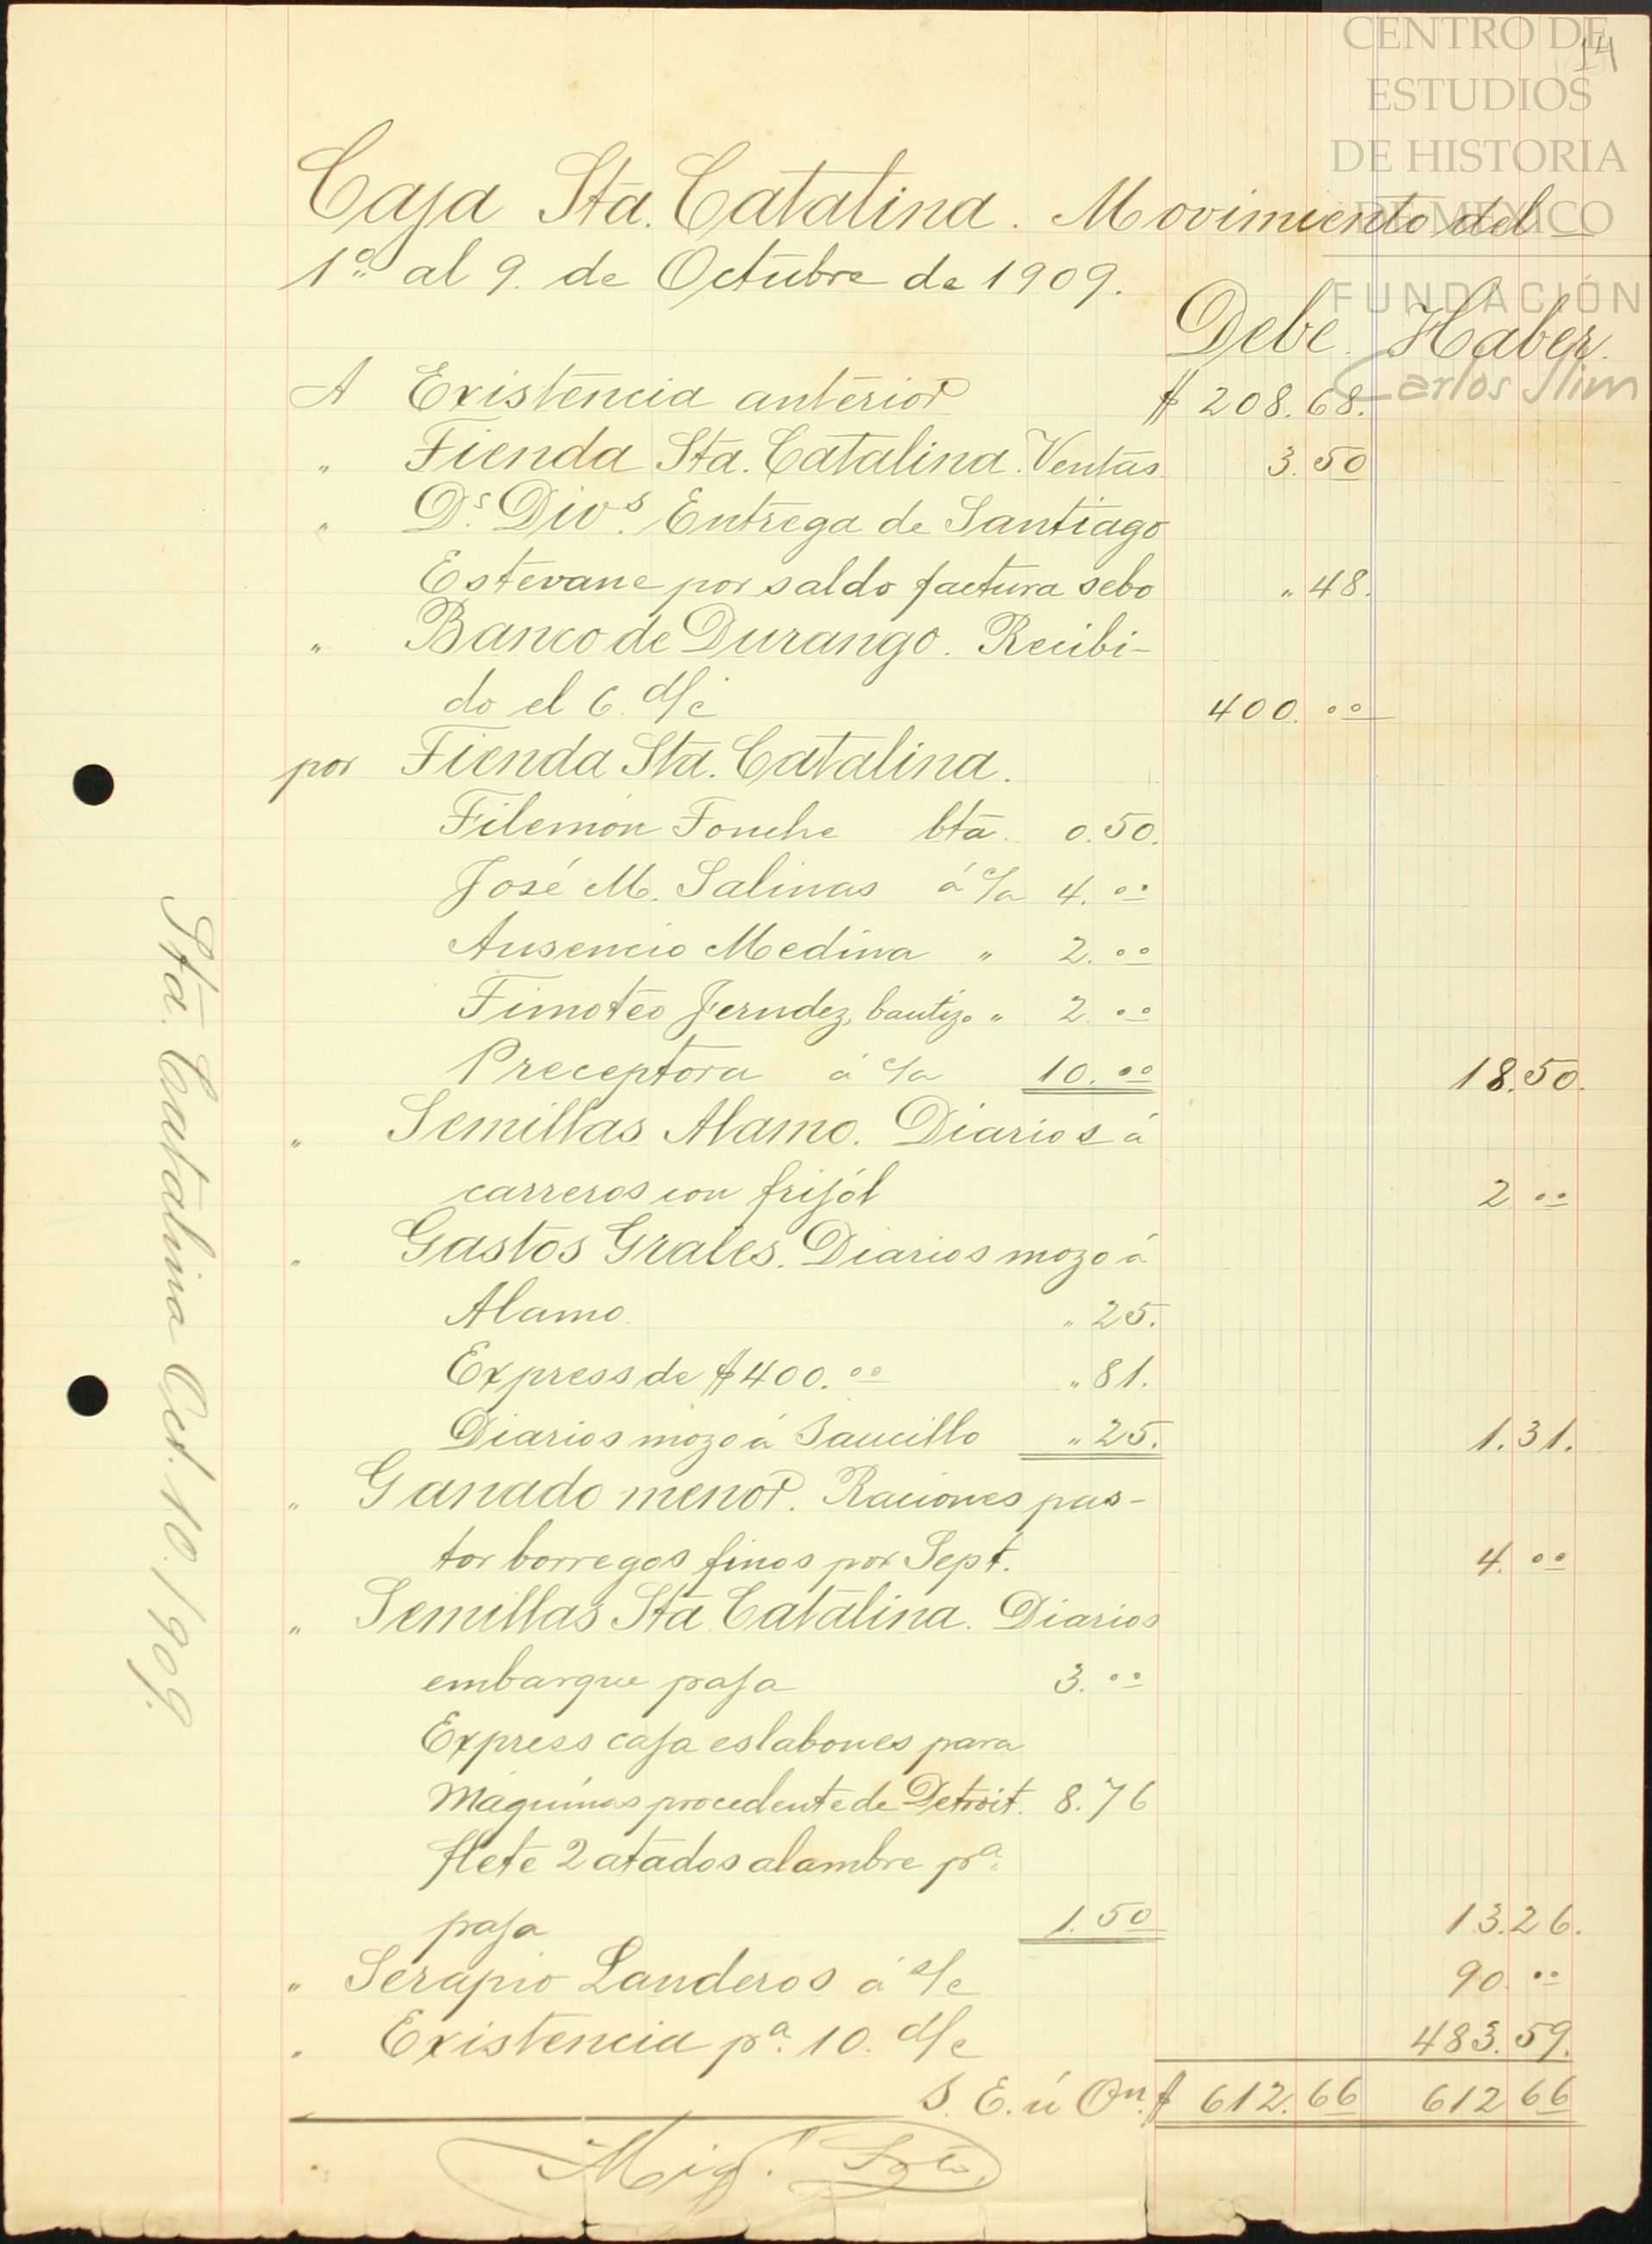 CENTRO DE
ESTUDIOS
DE HISTORIA
DE MÉXICO
FUNDACIÓN
Carlos Slim
14
Caja Sta. Catalina. Movimiento del
1º. al 9. de Octubre de 1909.
Debe. Haber.
A Existencia anterior $ 208.68.
" Tienda Sta. Catalina. Ventas. 3.50
" Ds. Divs. Entrega de Santiago
Estevane por saldo factura sebo " 48.
" Banco de Durango. Recibi-
do el 6. d/c 400.00
por Tienda Sta. Catalina.
Filemón Fonche bta. 0.50.
José M. Salinas á c/a 4.00
Ausencio Medina " 2.00
Timoteo Ferndez, bautizo " 2.00
Preceptora á c/a 10.00 18.50.
" Semillas Alamo. Diarios á
carreros con frijól 2.00
" Gastos Grales. Diarios mozo á
Alamo. " 25.
Express de $400.00 " 81.
Diarios mozo á Saucillo " 25. 1.31.
" Ganado menor. Raciones pas-
tor borregos finos por Sept. 4.00
" Semillas Sta. Catalina. Diarios
embarque paja 3.00
Express caja eslabones para
Maquinas procedente de Detroit. 8.76
flete 2 atados alambre pª.
paja 1.50 13.26.
" Serapio Landeros á c/c 90.00
" Existencia pª. 10. d/c 483.59.
S. E. ú On. $ 612.66 612 66
Mig.
Sta. Catalina Oct. 10. 1909.